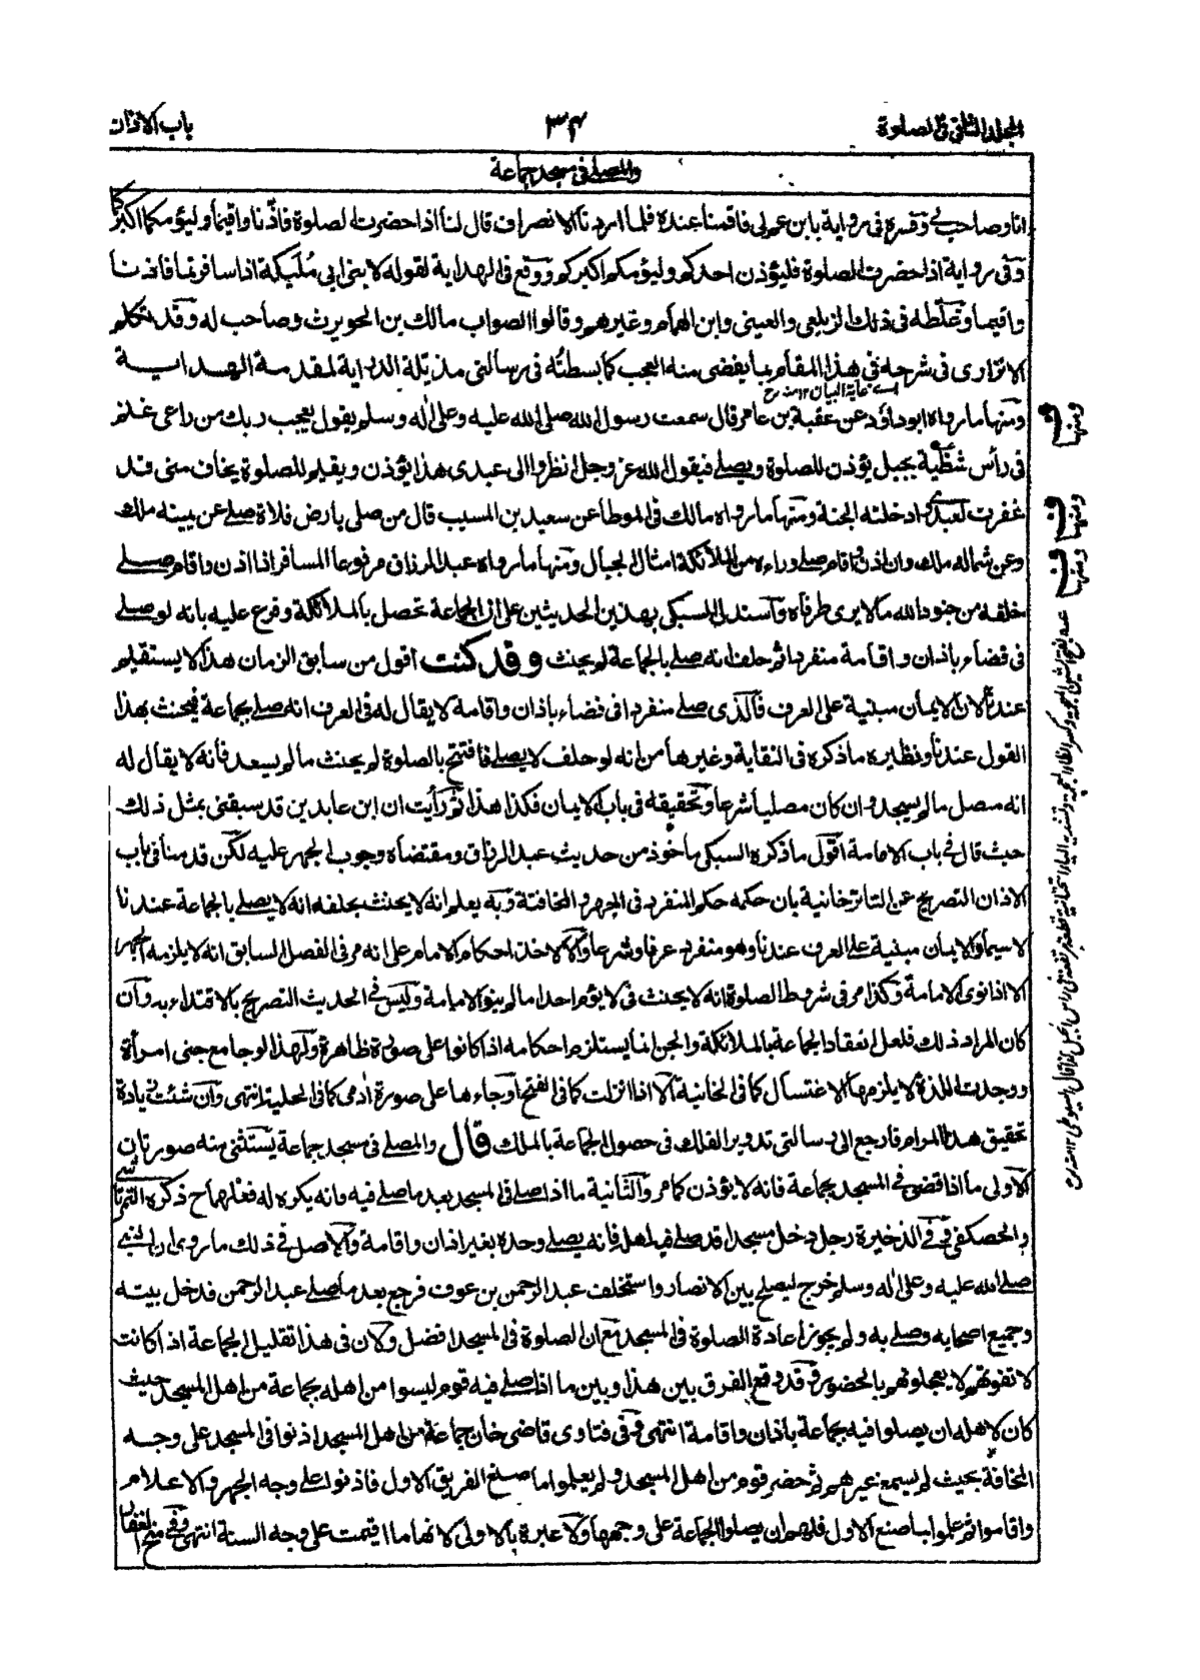 المجلد الثانی فی الصلوة
۳۴
باب الاذان
والمصلے فی مسجد جماعة
انا وصاحب لی وفسره فی رواية بابن عم لی فاقمنا عنده فلما اردنا الانصراف قال لنا اذا حضرت الصلوة فاذّنا واقيما وليؤمكما اكبركما
وفی رواية اذا حضرت الصلوة فليؤذن احدكم وليؤمكم اكبركم ووقع فی الهداية لقوله لابنی ابی مُلَيكة اذا سافرتما فاذنا
واقيما وغلّطه فی ذلك الزيلعی والعينی وابن الهمام وغيرهم وقالوا الصواب مالك بن الحويرث وصاحب له وقد تكلم
الاتزاری فی شرحه فی هذا المقام بما يفضی منه العجب كما بسطتُه فی رسالتی مذيّلة الدراية لمقدمة الهداية
اسے غاية البيان ۱۲ منه رح
ومنها ما رواه ابوداؤد عن عقبة بن عامر قال سمعت رسول الله صلی الله عليه وعلی اٰله وسلم يقول يعجب ربك من راعی غنم
فی رأس شظّية بجبل يؤذن للصلوة ويصلے فيقول الله عز وجل انظروا الی عبدی هذا يؤذن ويقيم للصلوة يخاف منی قد
غفرت لعبدی وادخلته الجنة ومنها ما رواه مالك فی الموطا عن سعيد بن المسيب قال من صلی بارض فلاة صلے عن يمينه ملك
وعن شماله ملك وان اذن واقام صلے وراءه من الملائكة امثال الجبال ومنها ما رواه عبد الرزاق مرفوعا المسافر اذا اذن واقام صلے
خلفه من جنود الله ما لا يری طرفاه وأسند السبكی بهذين الحديثين علی ان الجماعة تحصل بالملائكة وفرع عليه بانه لو صلے
فی فضاء باذان واقامة منفردا ثم حلف انه صلے بالجماعة لم يحنث وقد كنت اقول من سابق الزمان هذا لا يستقيم
عندنا لان الايمان مبنية علی العرف فالذی صلے منفردا فی فضاء باذان واقامة لا يقال له فی العرف انه صلے بجماعة فيحنث بهذا
القول عندنا ونظيره ما ذكره فی النقاية وغيرها من انه لو حلف لا يصلے فافتتح بالصلوة لم يحنث ما لم يسجد فانه لا يقال له
انه مصل ما لم يسجد وان كان مصليا شرعا وتحقيقه فی باب الايمان فكذا هذا ثم رأيت ان ابن عابدين قد سبقنی بمثل ذلك
حيث قال فی باب الامامة اقول ما ذكره السبكی ماخوذ من حديث عبد الرزاق ومقتضاه وجوب الجهر عليه لكن قدمنا فی باب
الاذان التصريح عن التاترخانية بان حكمه حكم المنفرد فی الجهر والمخافتة وبه يعلم انه لا يحنث بحلفه انه لا يصلے بالجماعة عندنا
لا سيما والايمان مبنية علی العرف عندنا وهو منفرد عرفا وشرعا والا لاخذ احكام الامام علی انه مر فی الفصل السابق انه لا يلزمه الجهر
الا اذا نوی الامامة وكذا مر فی شروط الصلوة انه لا يحنث فی لا يؤم احدا ما لم ينو الامامة وليس فی الحديث التصريح بالاقتداء به وان
كان المراد ذلك فلعل انعقاد الجماعة بالملائكة والجن انما يستلزم احكامه اذا كانوا علی صورة ظاهرة ولهذا لو جامع جنی امرأة
ووجدت اللذة لا يلزمها الاغتسال كما فی الخانية الا اذا انزلت كما فی الفتح او جاءها علی صورة اٰدمی كما فی الحلية انتهی وان شئت زيادة
تحقيق هذا المرام فارجع الی رسالتی تدوير الفلك فی حصول الجماعة بالملك قال والمصلے فی مسجد جماعة يستثنی منه صورتان
الاولی ما اذا قضی فی المسجد بجماعة فانه لا يؤذن كما مر والثانية ما اذا صلے فی المسجد بعد ما صلے فيه فانه يكره له فعلهما ح ذكره التمرتاشے
والحصكفی وفی الذخيرة رجل دخل مسجدا قد صلے فيه اهله فانه يصلے وحده بغير اذان واقامة والاصل فی ذلك ما روی ان النبی
صلے الله عليه وعلی اٰله وسلم خرج ليصلح بين الانصار واستخلف عبد الرحمن بن عوف فرجع بعد ما صلے عبد الرحمن فدخل بيته
وجميع اصحابه وصلے به ولم يجوز اعادة الصلوة فی المسجد مع ان الصلوة فی المسجد افضل ولان فی هذا تقليل الجماعة اذا كانت
لا تفوتهم لا يعجلونهم بالحضور وقد وقع الفرق بين هذا وبين ما اذا صلے فيه قوم ليسوا من اهله بجماعة من اهل المسجد حيث
كان لاهله ان يصلوا فيه بجماعة باذان واقامة انتهی وفی فتاوی قاضی خان جماعة من اهل المسجد اذنوا فی المسجد علی وجه
المخافة بحيث لم يسمع غيرهم ثم حضر قوم من اهل المسجد ولم يعلموا ما صنع الفريق الاول فاذنوا علے وجه الجهر والاعلام
واقاموا ثم علموا بما صنع الاول فلهم ان يصلوا الجماعة علی وجهها ولا عبرة بالاولی لانها ما اقيمت علی وجه السنة انتهی وفی منح الغفار
ومنها
ومنها
ومنها